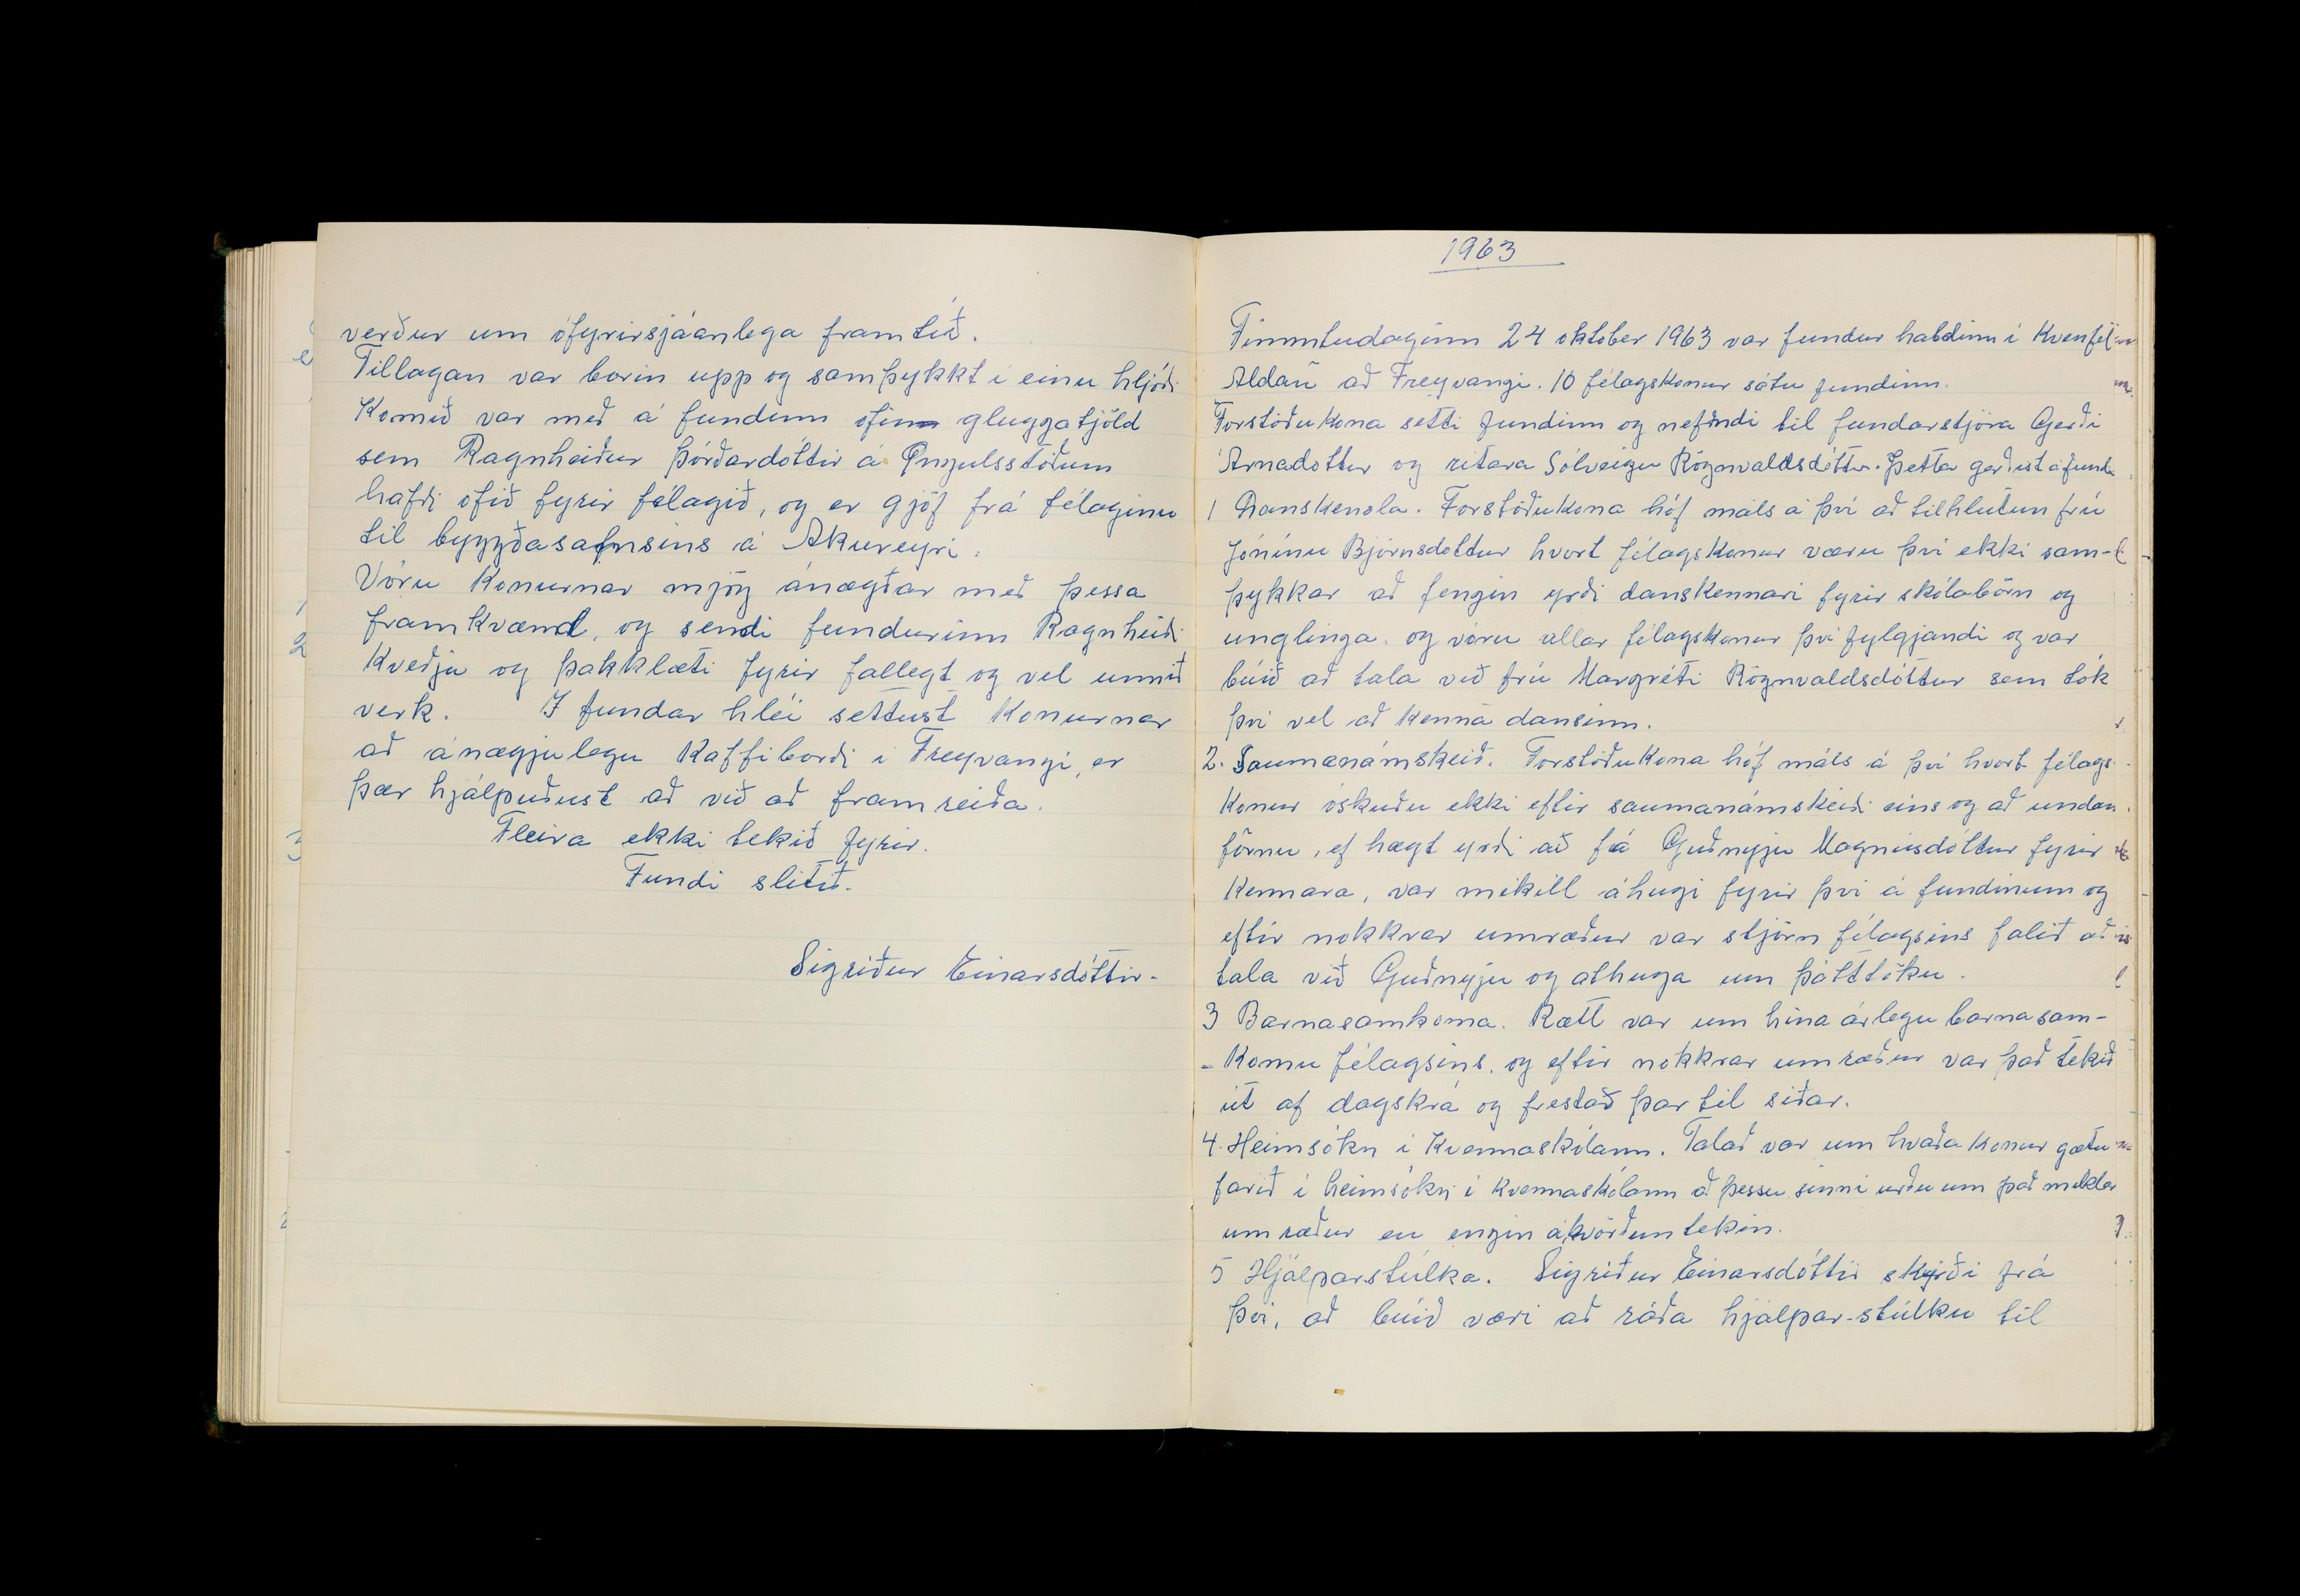 verður um ófyrirsjáanlega framtíð.
Tillagan var borin upp og samþykkt í einu hljóði
Komið var með á fundinn ofin gluggatjöld
sem Ragnheiður Þórðardóttir á Öngulsstöðum
hafði ofið fyrir félagið, og er gjöf frá félaginu
til byggðasafnsins á Akureyri.
Vóru Konurnar mjög ánægðar með þessa
framkvæmd, og sendi fundurinn Ragnheiði
Kveðju og þakklæti fyrir fallegt og vel unnið
verk. Í fundar hléi settust Konurnar
að ánægjulegu Kaffiborði í Freyvangi, er
þær hjálpuðust að við að framreiða.
Fleira ekki tekið fyrir.
Fundi slitið.
Sigríður Einarsdóttir.
1963
Fimmtudaginn 24 október 1963 var fundur haldinn í Kvenfél
Aldan að Freyvangi. 10 félagskonur sátu fundinn.
Forstöðukona setti fundinn og nefndi til fundarstjóra Gerði
Árnadóttur og ritara Sólveigu Rögnvaldsdóttur. Þetta gerðist á fundi
1 Danskensla. Forstöðukona hóf máls á því að tilhlutun frú
Jónínu Björnsdóttur hvort félagskonur væru því ekki sam-
þykkar að fengin yrði danskennari fyrir skólabörn og
unglinga. og vóru allar félagskonur því fylgjandi og var
búið að tala við frú Margréti Rögnvaldsdóttur sem tók
því vel að kenna dansinn.
2. Saumanámskeið. Forstöðukona hóf máls á því hvort félags-
Konur óskuðu ekki eftir saumanámskeiði eins og að undan
förnu, ef hægt yrði að fá Guðnýju Magnúsdóttur fyrir
Kennara, var mikill áhugi fyrir því á fundinum og
eftir nokkrar umræður var stjórn félagsins falið að
tala við Guðnýju og athuga um þátttöku.
3 Barnasamkoma. Rætt var um hina árlegu barnasam-
- Komu félagsins. og eftir nokkrar umræður var það tekið
út af dagskrá og frestað þar til síðar.
4. Heimsókn í Kvennaskólann. Talað var um hvaða Konur gætu
farið í heimsókn í Kvennaskólann að þessu sinni urðu um það miklar
umræður en engin ákvörðun tekin.
5 Hjálparstúlka. Sigríður Einarsdóttir skýrði frá
því, að búið væri að ráða hjálpar-stúlku til